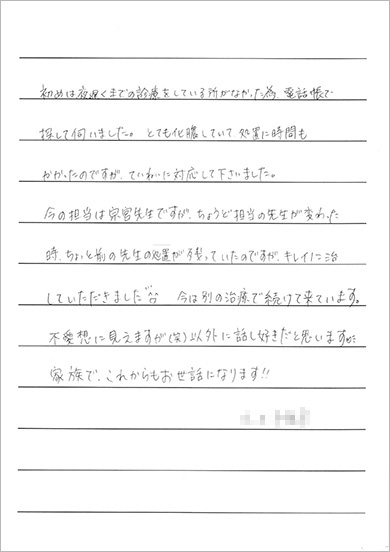 初めは夜遅くまでの診療をしている所がなかった為、電話帳で
探して伺いました。とても化膿していて、処置に時間も
かかったのですが、ていねいに対応して下さいました。
今の担当は宗宮先生ですが、ちょうど担当の先生が変わった
時、ちょっと前の先生の処置が残っていたのですが、キレイに治
していただきました^^ 今は別の治療で続けて来ています。
不愛想に見えますが(笑)以外に話し好きだと思います
家族で、これからもお世話になります!!